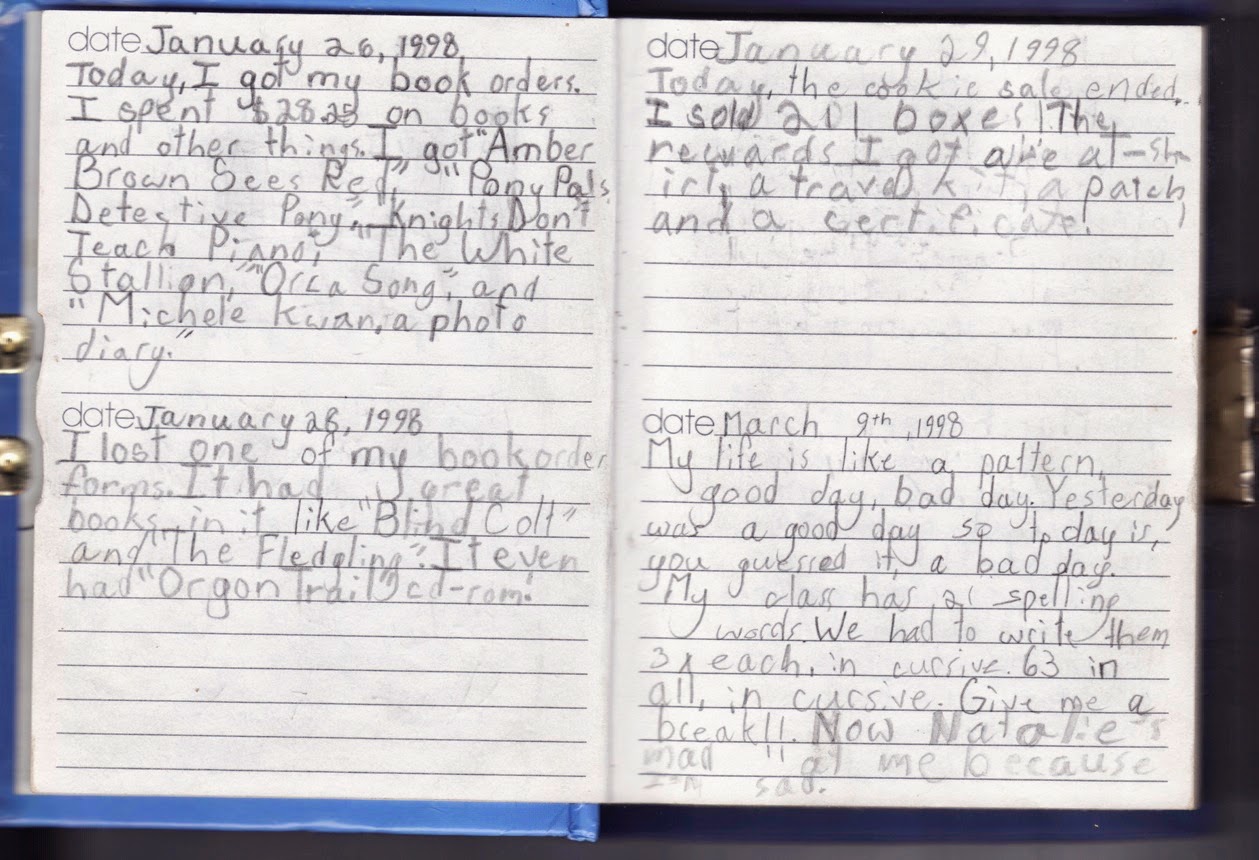 date January 26, 1998
Today, I got my book orders.
I spent $28.25 on books
and other things. I got "Amber
Brown Sees Red," "Pony Pals
Detective Pony", "Knights Don't
Teach Piano," "The White
Stallion," "Orca Song", and
"Michele Kwan, a photo
diary."
date January 28, 1998
I lost one of my book order
forms. It had great
books in it like "Blind Colt"
and "The Fledgling". It even
had "Orgon Trail" cd-rom!
date January 29, 1998
Today, the cookie sale ended.
I sold 201 boxes! The
rewards I got are a t-sh
irt, a travel kit, a patch,
and a certificate!
date March 9th, 1998
My life is like a pattern,
good day, bad day. Yesterday
was a good day so today is,
you guessed it, a bad day.
My class has 21 spelling
words. We had to write them
3x each, in cursive. 63 in
all, in cursive. Give me a
break!!. Now Natalie's
mad at me because
I'm sad.